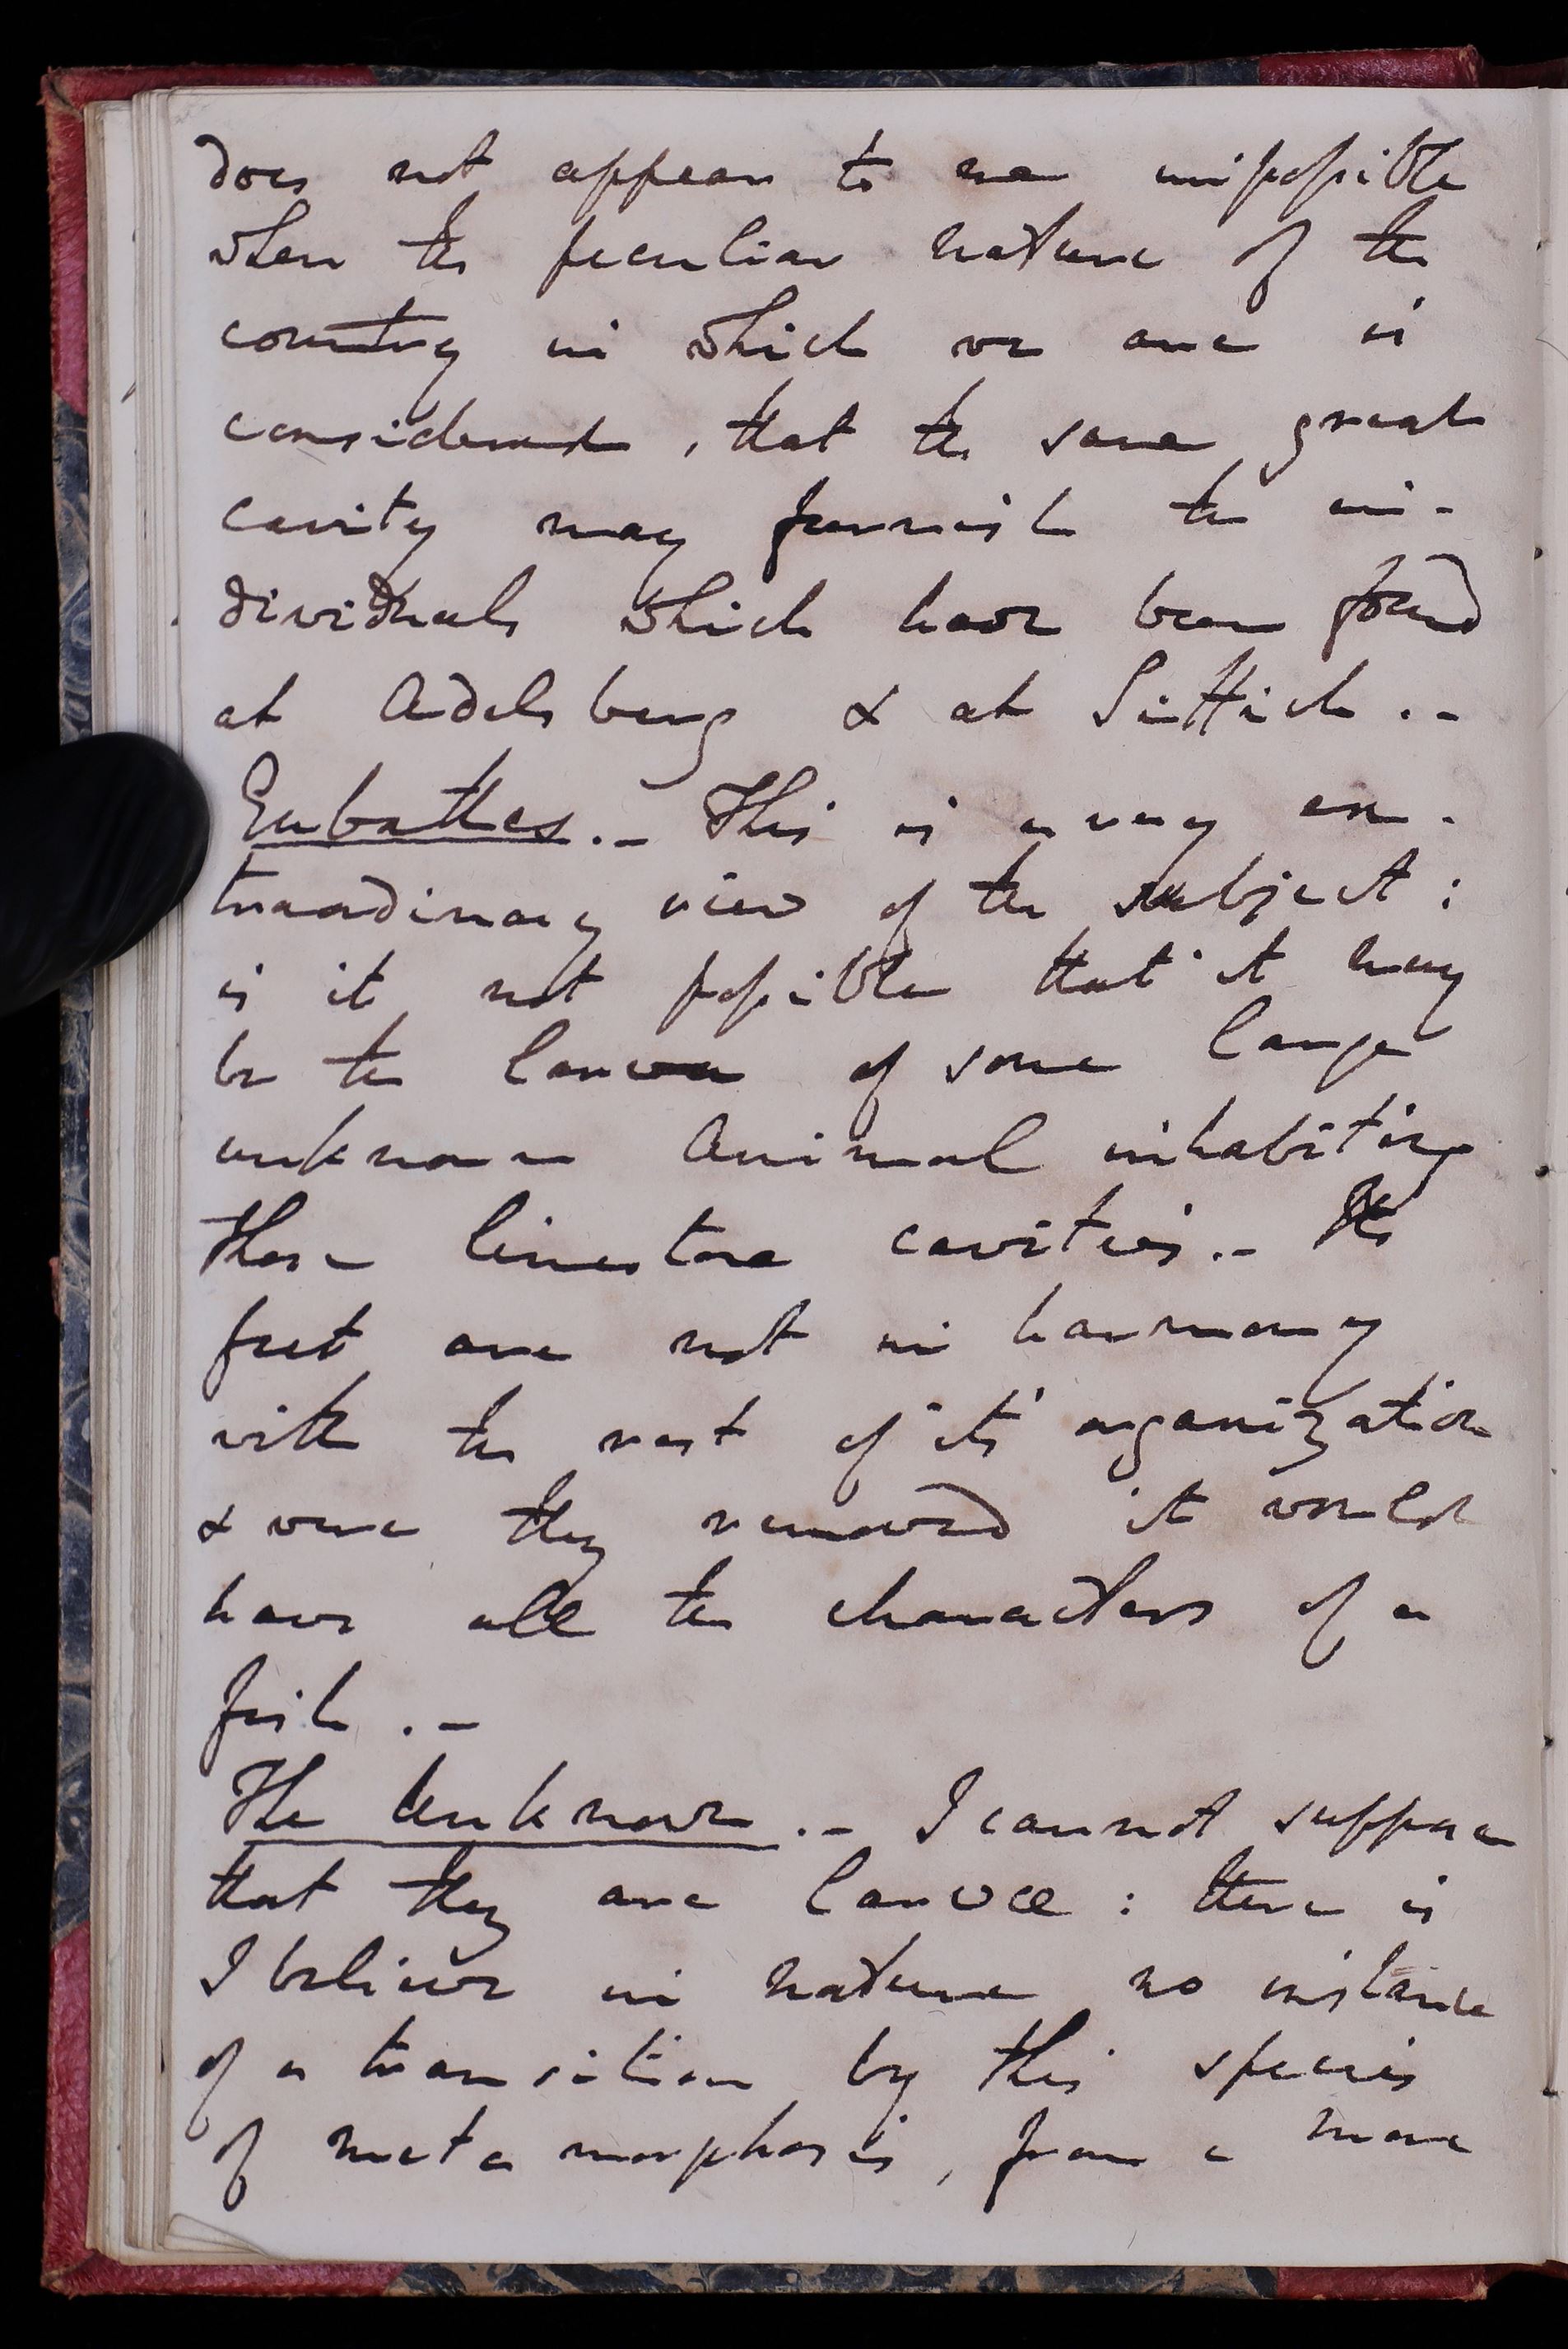 does not appear to me impossible
when the peculiar nature of the
country in which we are is
considered, that the same great
cavity may furnish the in-
dividuals which have been found
at Adelsberg & at Sittich .-
Eubathes .- This is a very ex-
traordinary view of the subject :
is it not possible that it may
be the larva of some large
unknown Animal inhabiting
these limestone cavities .- Its
feet are not in harmony
with the rest of its' organization
& were they removed it would
have all the characters of a
fish .-
The Unknown .- I cannot suppose
that they are larvæ : there is
I believe in nature no instance
of a transition by this species
of metamorphosis, from a more